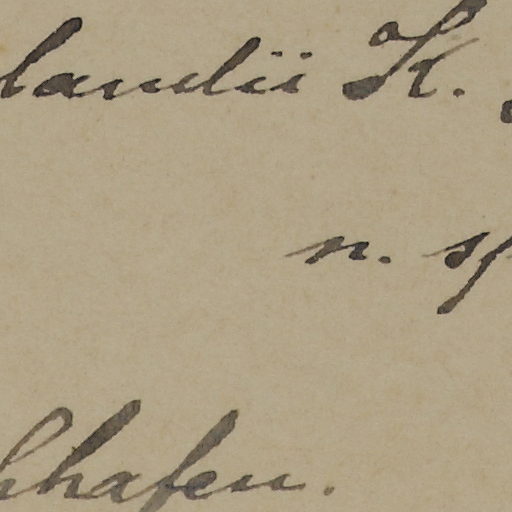 landii K.
n. sp
hhafen.